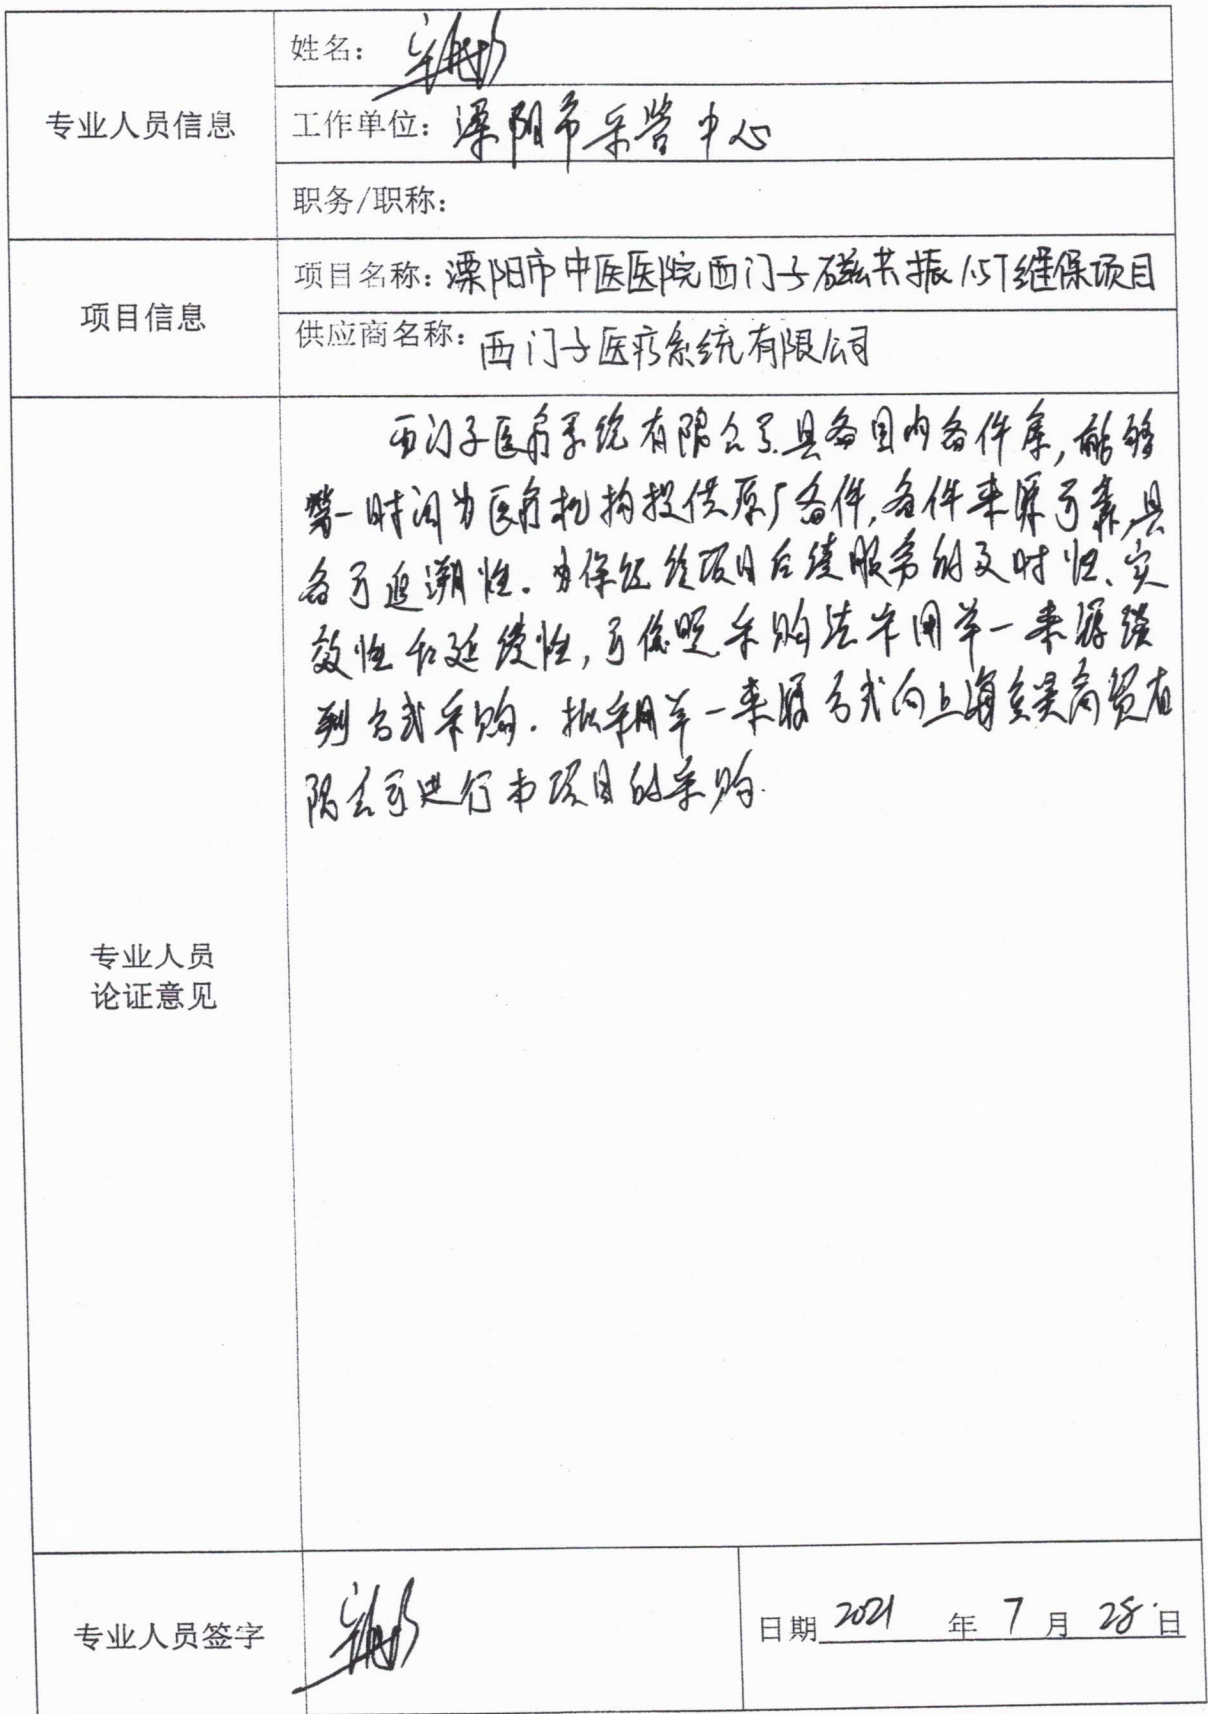 专业人员信息
姓名：
工作单位：溧阳市采管中心
职务/职称：
项目信息
项目名称：溧阳市中医医院西门子磁共振1.5T维保项目
供应商名称：西门子医疗系统有限公司
专业人员
论证意见
西门子医疗系统有限公司具备国内备件库，能够
第一时间为医疗机构提供原厂备件，备件来源可靠，具
备可追溯性。为保证该项目后续服务的及时性、实
效性和延续性，可依照采购法采用单一来源谈
判方式采购。拟采用单一来源方式向上海昊商贸有
限公司进行本项目的采购.
专业人员签字
日期 2021 年 7 月 28 日